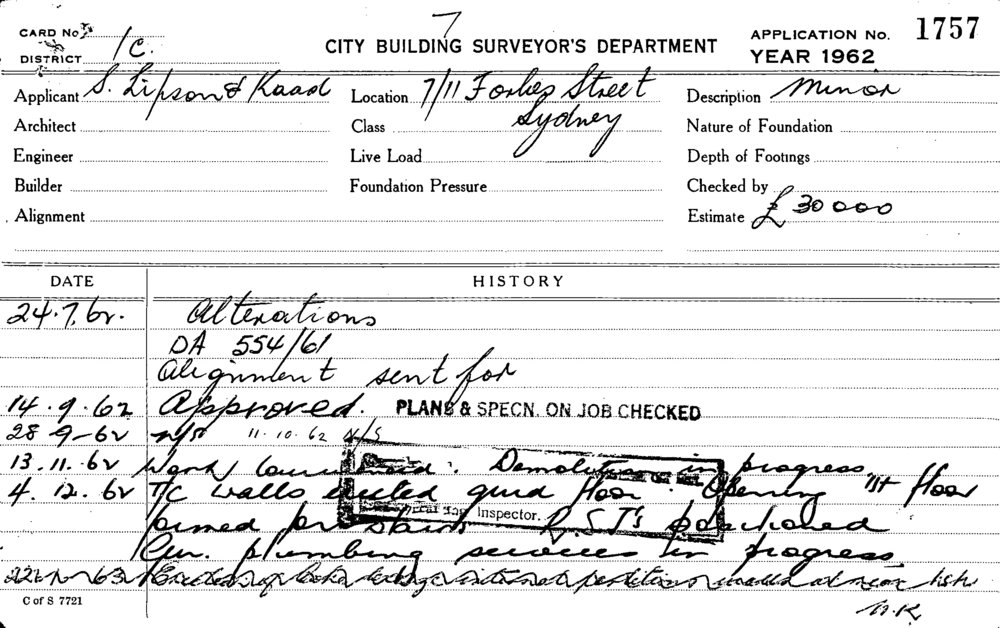 7
CARD No.
DISTRICT 1C.
CITY BUILDING SURVEYOR'S DEPARTMENT
APPLICATION No. 1757
YEAR 1962
Applicant S. Lipson & Kaad Location 7/11 Forbes Street Description Minor
Architect Class Sydney Nature of Foundation
Engineer Live Load Depth of Footings
Builder Foundation Pressure Checked by
Alignment Estimate £ 30000
DATE HISTORY
24.7.62. Alterations
DA 554/61
Alignment sent for
14.9.62 Approved. PLANS & SPECN. ON JOB CHECKED
28 9-62 n/s 11.10.62 N/S
13.11.62 Work commenced. Demolition in progress
4.12.62 T/C walls erected grnd floor. Opening 1st floor
formed for stairs R.S.J's
Inspector.
Gen. plumbing services in progress
63 internal partition
N.K
C of S 7721